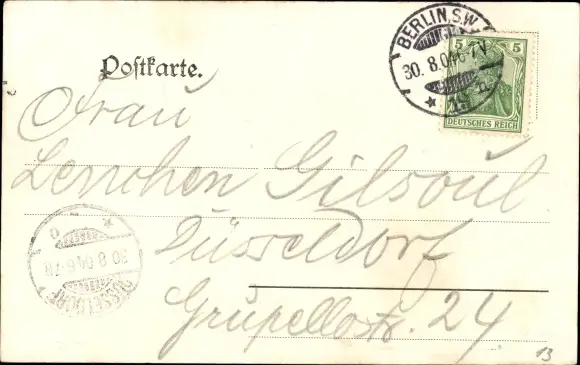 BERLIN, S.W.
30. 8. 04. 6-7 V.
5 5
DEUTSCHES REICH
Postkarte.
Frau
Lenchen Gilsoul
Düsseldorf
Grupellostr. 24
DÜSSELDORF
30 8 04 6-7 N
13